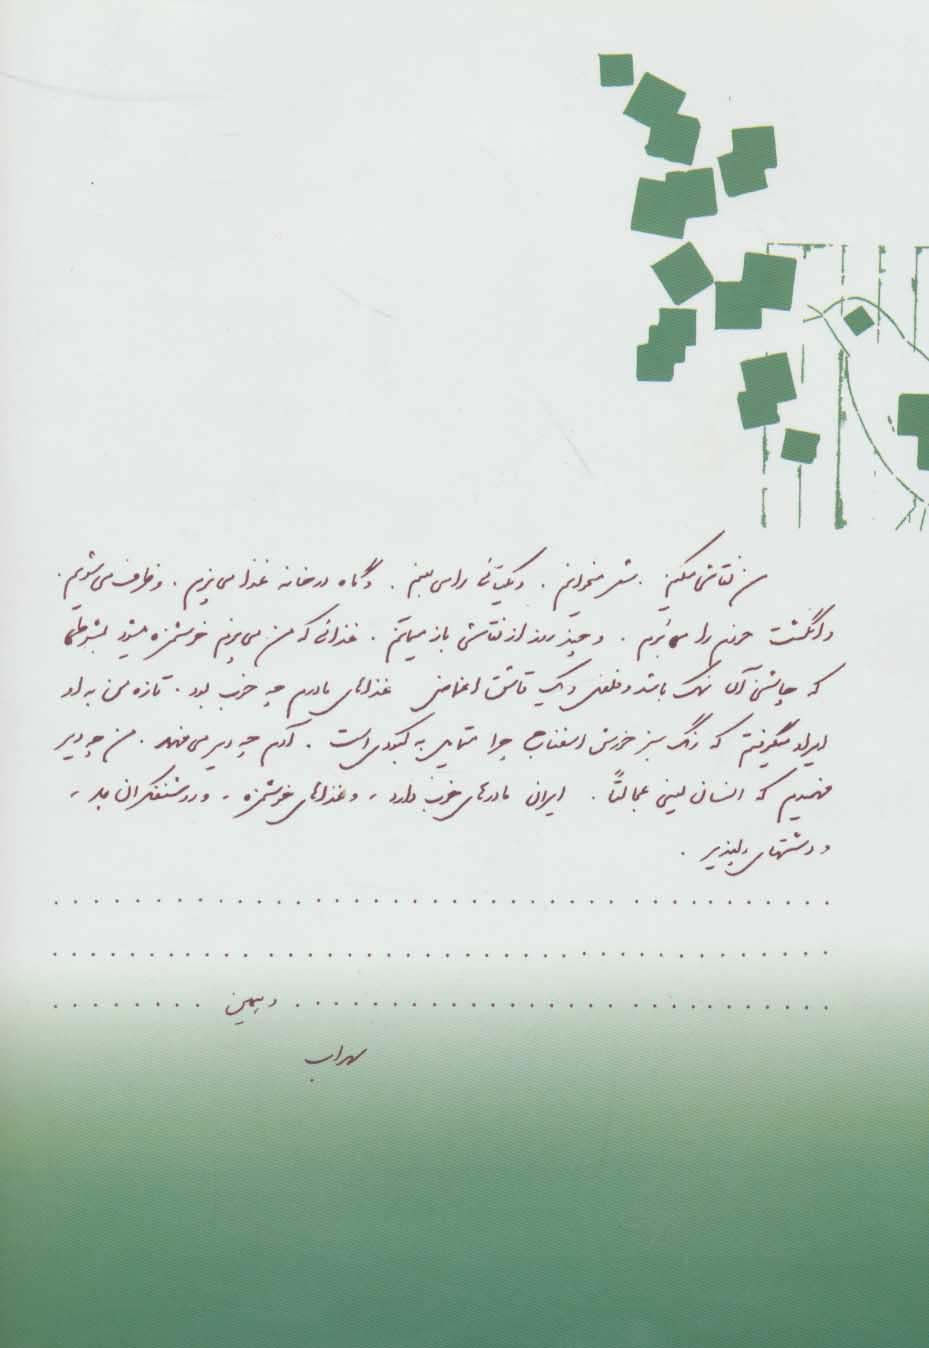 من نقاشی میکنم. شعر میخوانم. و یکتائی را می بینم. و گاه در خانه غذا می پزم. و ظرف می شویم.
و انگشت خودم را می بُرم. و چند روز از نقاشی باز میمانم. غذائی که من می پزم خوشمزه میشود بشرطی
که چاشنی آن نمک باشد و فلفل و یک قاشق اغماض غذاهای مادرم چه خوب بود. تازه من به او
ایراد میگرفتم که رنگ سبز خورش اسفناج چرا متمایل به کبودی است. آدم چه دیر می فهمد. من چه دیر
فهمیدم که انسان یعنی عجالتاً. ایران مادرهای خوب دارد - و غذاهای خوشمزه - و روشنفکران بد -
و دشتهای دلپذیر.
و همین
سهراب